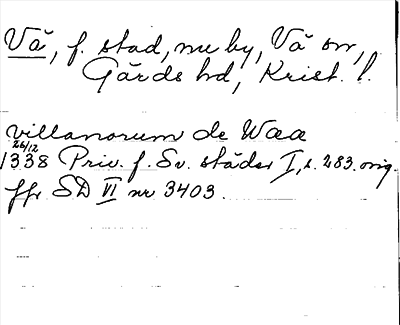 Vä, f. stad, nu by, Vä sn,
Gärds hd, Krist. l.
villanorum de Waa
26/12
1338 Priv. f. Sv. städer I, s. 283. orig.
ffr SD VI nr 3403.